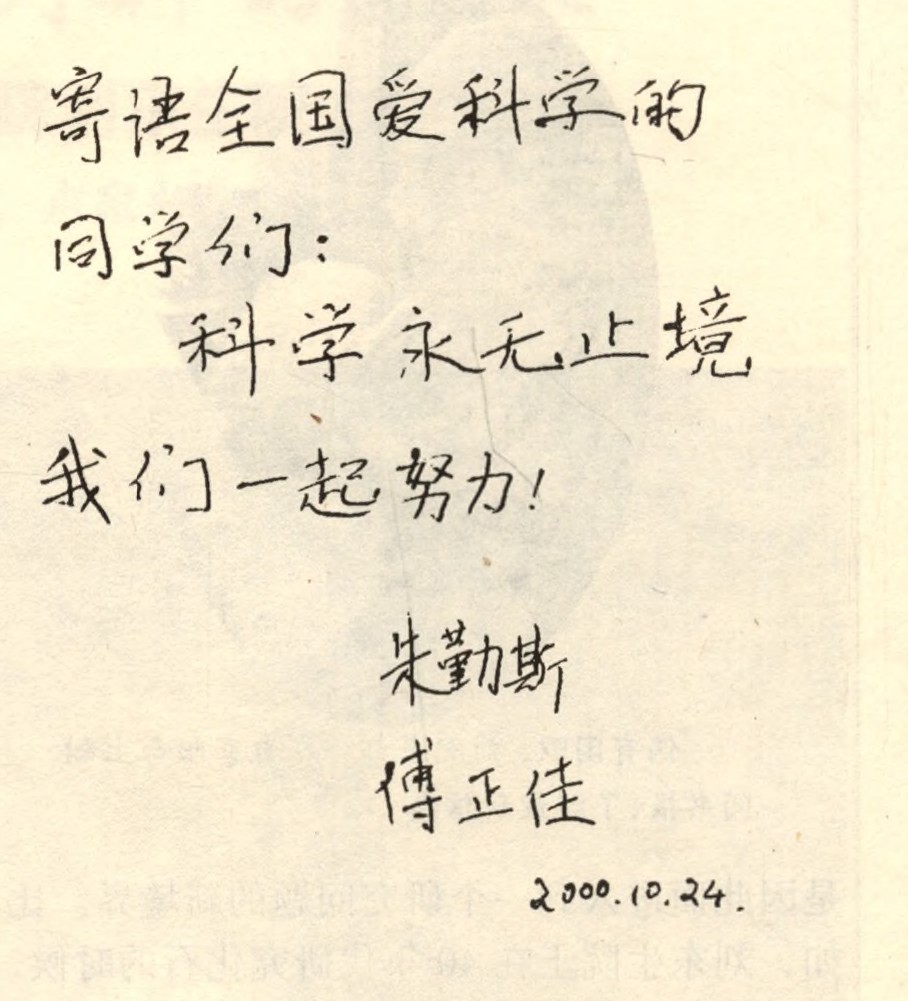 寄语全国爱科学的
同学们：
科学永无止境
我们一起努力！
朱勤斯
傅正佳
2000.10.24.